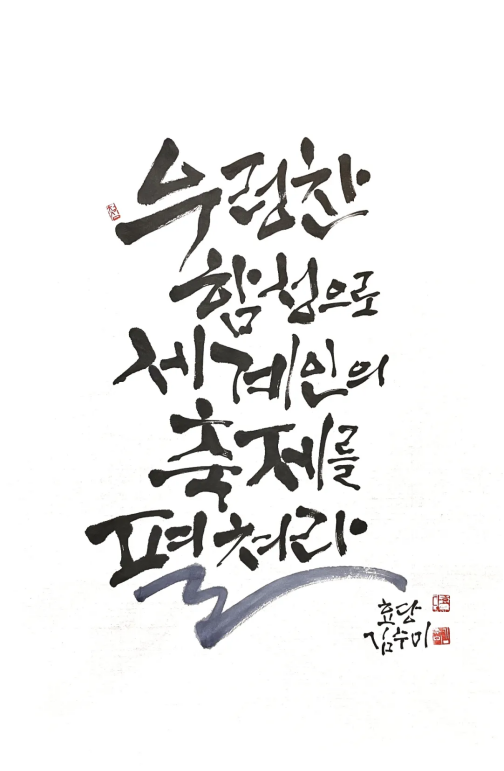 우렁찬
함성으로
세계인의
축제를
펼쳐라
효당
김수미